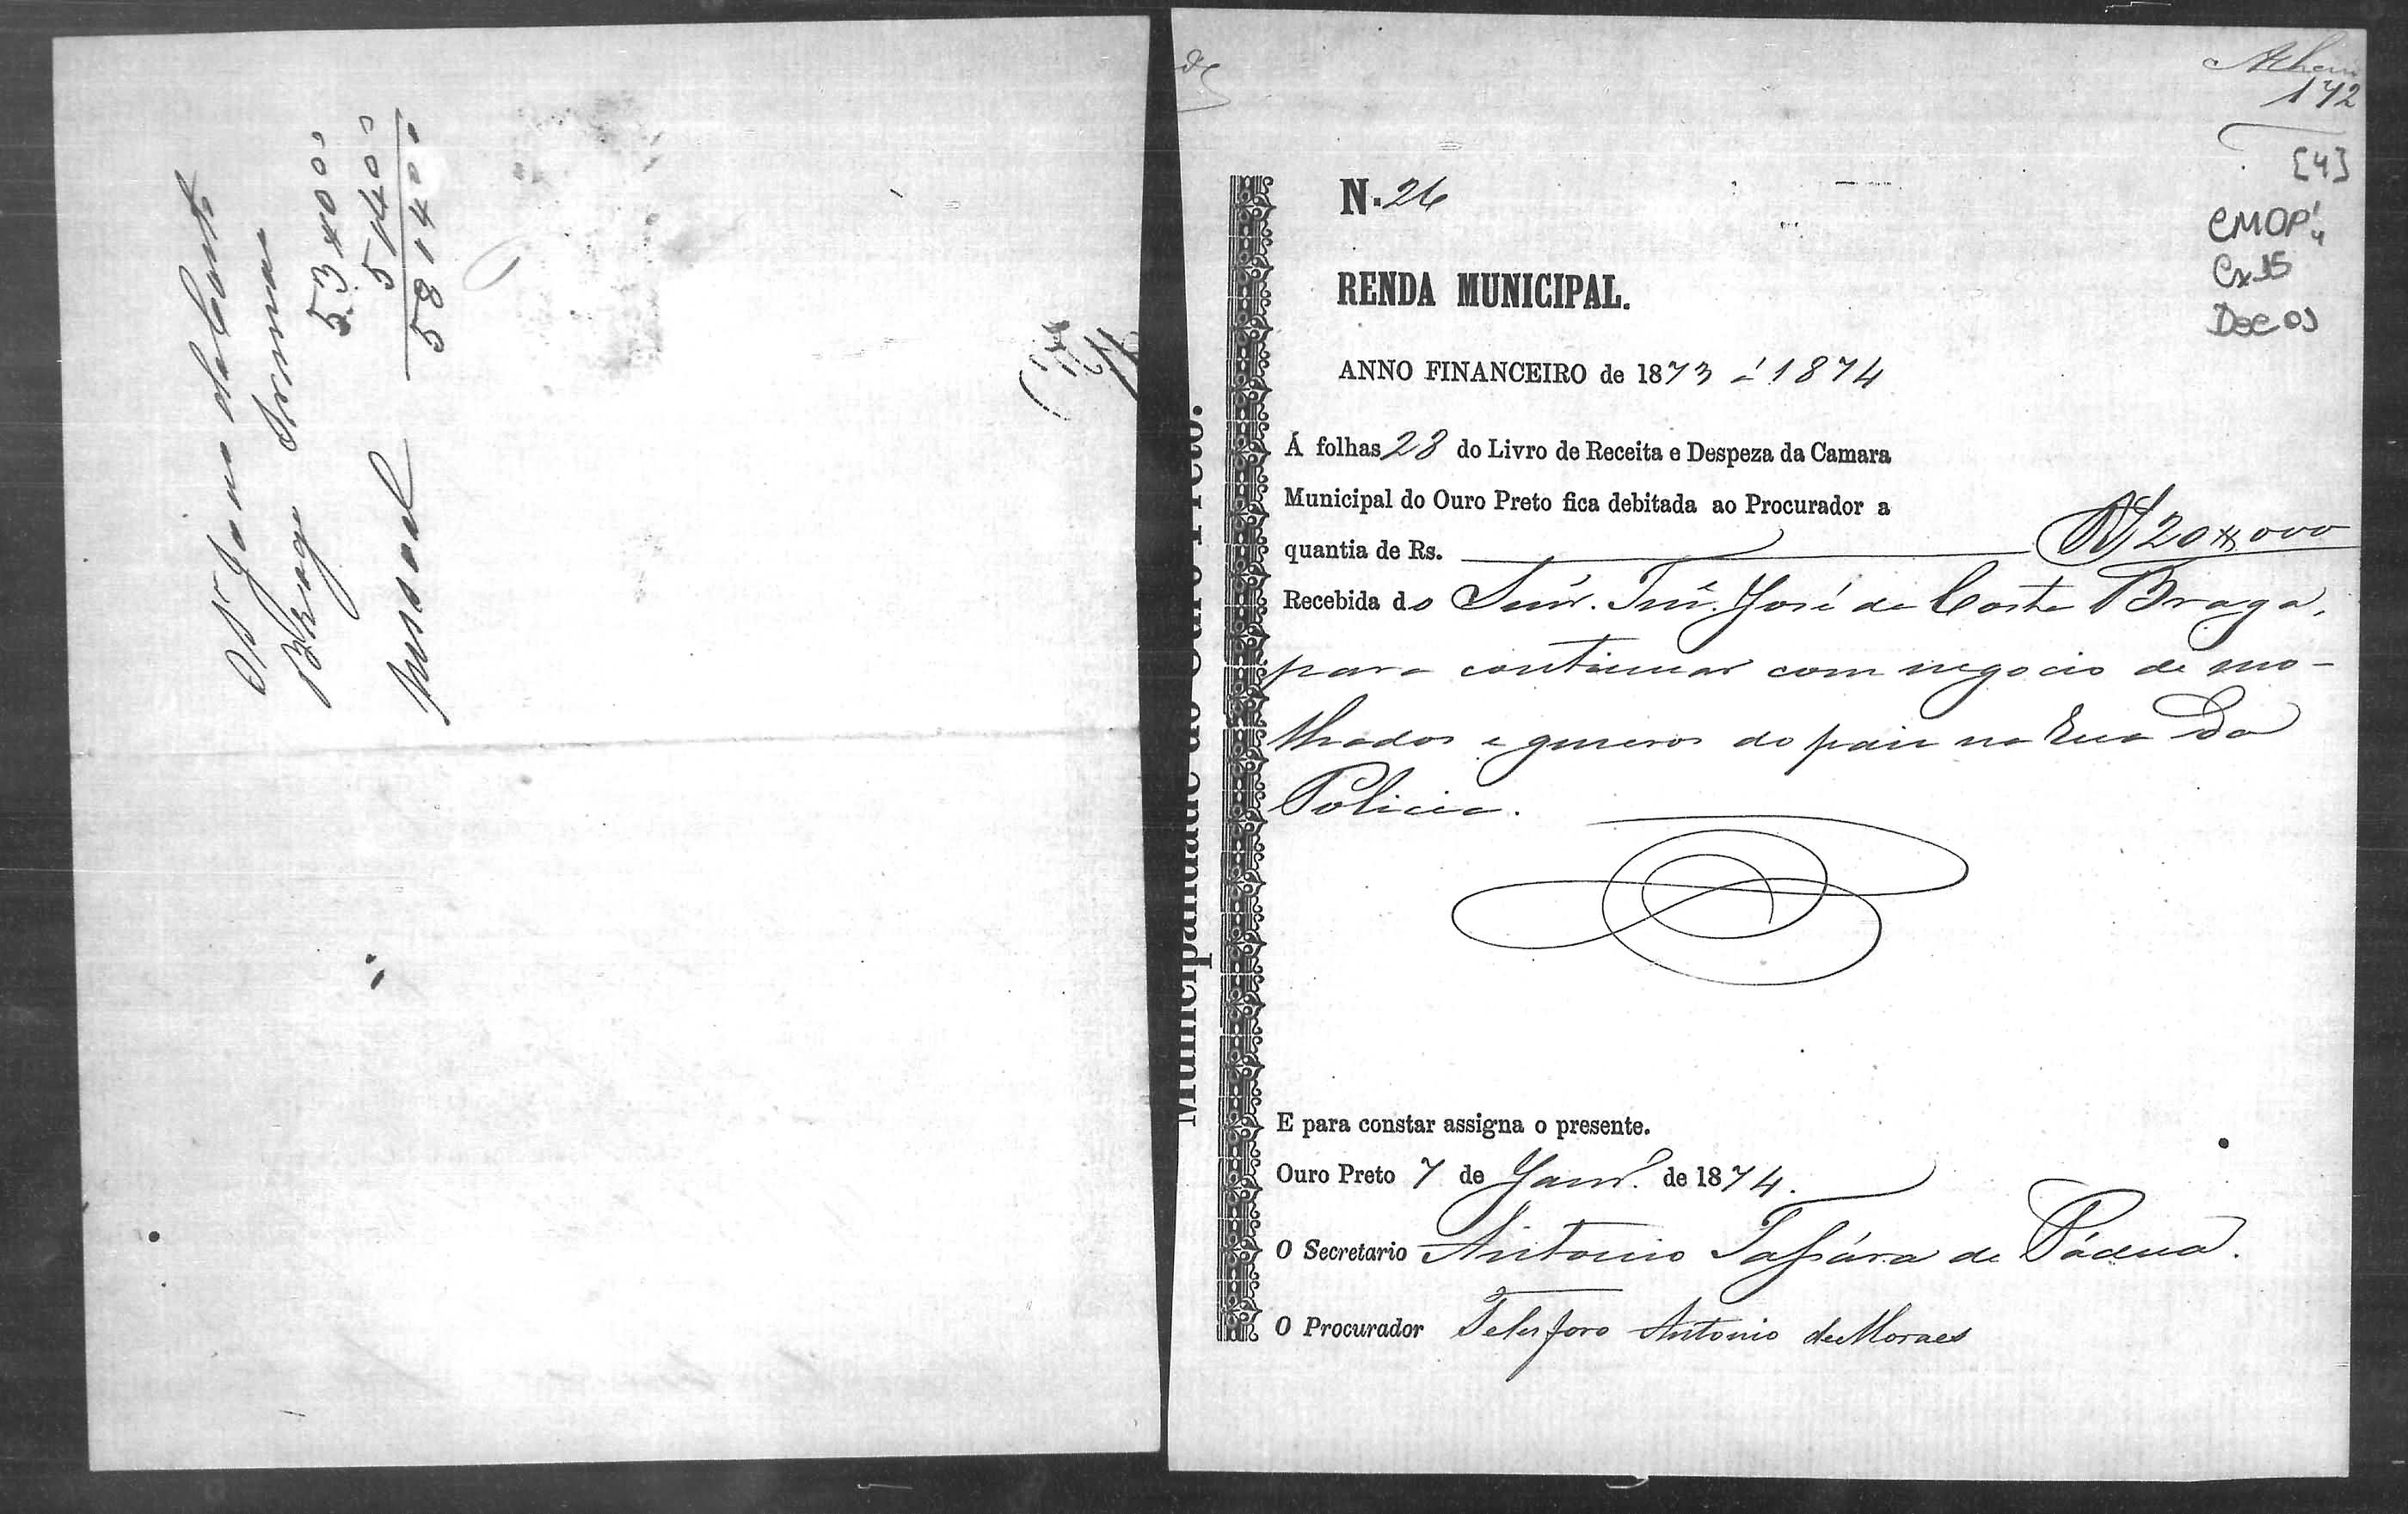 Braga
53#000
5#400
58#400
N. 26
RENDA MUNICIPAL.
ANNO FINANCEIRO de 1873 á 1874
Á folhas 28 do Livro de Receita e Despeza da Camara
Municipal do Ouro Preto fica debitada ao Procurador a
quantia de Rs. R$ 20#000
Recebida do Snr. Tn.e José da Costa Braga,
para continuar com negocio de mo-
lhados e generos do paiz na Rua Da
Policia.
E para constar assigna o presente.
Ouro Preto 7 de Janr.o de 1874.
O Secretario Antonio de Pádua.
O Procurador Telesforo Antonio de Moraes
Municipalidade do Ouro Preto.
172
[4]
CMOP
Cx 15
Doc 03